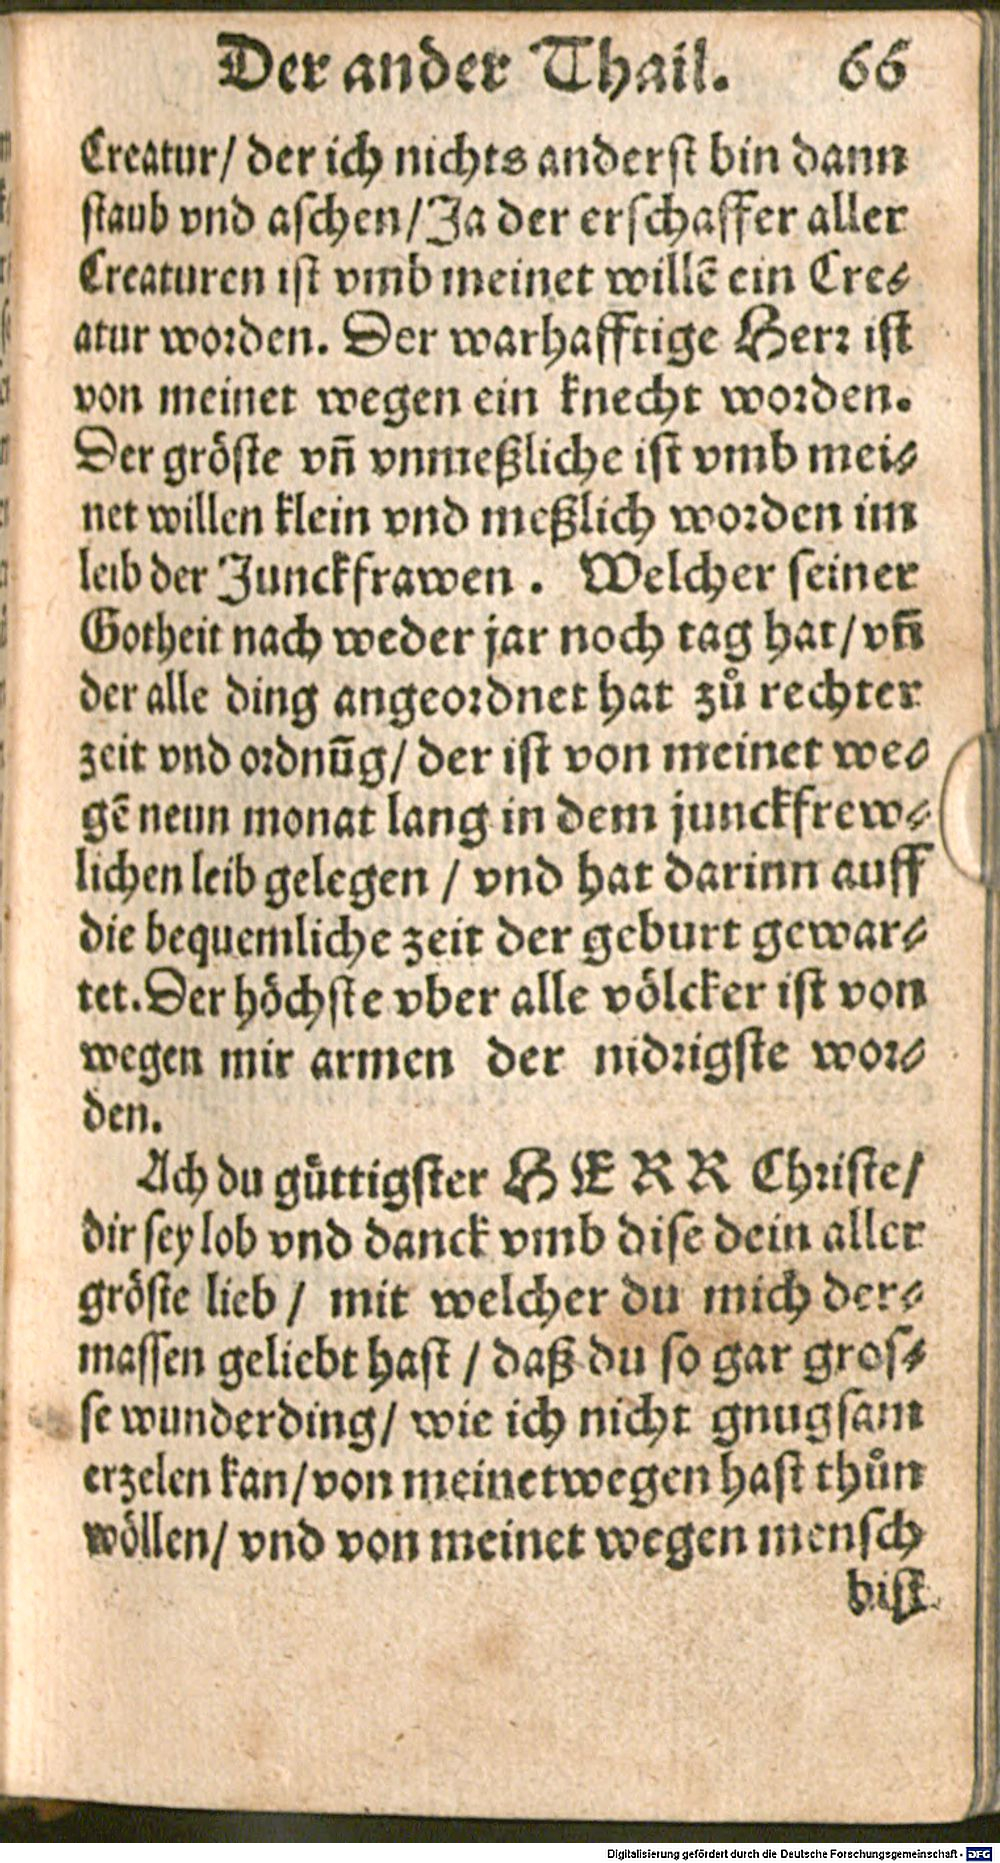 Der ander Thail. 66
Creatur/ der ich nichts anderst bin dann
staub vnd aschen/ Ja der erschaffer aller
Creaturen ist vmb meinet willē ein Cre⸗
atur worden. Der warhafftige Herr ist
von meinet wegen ein knecht worden.
Der gröste vn̄ vnmeßliche ist vmb mei⸗
net willen klein vnd meßlich worden im
leib der Junckfrawen. Welcher seiner
Gotheit nach weder jar noch tag hat/ vn̄
der alle ding angeordnet hat zů rechter
zeit vnd ordnūg/ der ist von meinet we⸗
gē neun monat lang in dem junckfrew⸗
lichen leib gelegen / vnd hat darinn auff
die bequemliche zeit der geburt gewar⸗
tet. Der höchste vber alle völcker ist von
wegen mir armen der nidrigste wor⸗
den.
Ach du güttigster HERR Christe/
dir sey lob vnd danck vmb dise dein aller
gröste lieb / mit welcher du mich der⸗
massen geliebt hast / daß du so gar gros⸗
se wunderding/ wie ich nicht gnugsam
erzelen kan/ von meinetwegen hast thůn
wöllen/ vnd von meinet wegen mensch
bist
Digitalisierung gefördert durch die Deutsche Forschungsgemeinschaft - DFG